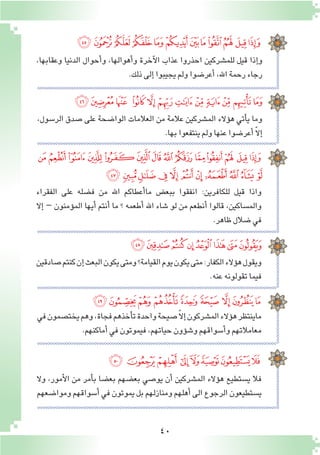 وَإِذَا قِيلَ لَهُمُ اتَّقُوا مَا بَيْنَ أَيْدِيكُمْ وَمَا خَلْفَكُمْ لَعَلَّكُمْ تُرْحَمُونَ ٤٥
وإذا قيل للمشركين احذروا عذاب الآخرة وأهوالها، وأحوال الدنيا وعقابها،
رجاء رحمة الله، أعرضوا ولم يجيبوا إلى ذلك.
وَمَا تَأْتِيهِم مِّنْ آيَةٍ مِّنْ آيَاتِ رَبِّهِمْ إِلَّا كَانُوا عَنْهَا مُعْرِضِينَ ٤٦
وما يأتي هؤلاء المشركين علامة من العلامات الواضحة على صدق الرسول،
إلاّ أعرضوا عنها ولم ينتفعوا بها.
وَإِذَا قِيلَ لَهُمْ أَنفِقُوا مِمَّا رَزَقَكُمُ اللَّهُ قَالَ الَّذِينَ كَفَرُوا لِلَّذِينَ آمَنُوا أَنُطْعِمُ مَن
لَّوْ يَشَاءُ اللَّهُ أَطْعَمَهُ إِنْ أَنتُمْ إِلَّا فِي ضَلَالٍ مُّبِينٍ ٤٧
واذا قيل للكافرين: انفقوا ببعض ماأطعاكم الله من فضله على الفقراء
والمساكين، قالوا أنطعم من لو شاء الله أطعمه ؟ ما أنتم أيها المؤمنون – إلا
في ضلال ظاهر.
وَيَقُولُونَ مَتَىٰ هَٰذَا الْوَعْدُ إِن كُنتُمْ صَادِقِينَ ٤٨
ويقول هؤلاء الكفار: متى يكون يوم القيامة؟ ومتى يكون البعث إن كنتم صادقين
فيما تقولونه عنه.
مَا يَنظُرُونَ إِلَّا صَيْحَةً وَاحِدَةً تَأْخُذُهُمْ وَهُمْ يَخِصِّمُونَ ٤٩
ماينتظر هؤلاء المشركون إلاّ صيحة واحدة تأخذهم فجأة، وهم يختصمون في
معاملاتهم وأسواقهم وشؤون حياتهم، فيموتون في أماكنهم.
فَلَا يَسْتَطِيعُونَ تَوْصِيَةً وَلَا إِلَىٰ أَهْلِهِمْ يَرْجِعُونَ ٥٠
فلا يستطيع هؤلاء المشركين أن يوصي بعضهم بعضا بأمر من الأمور، ولا
يستطيعون الرجوع الى أهلهم ومنازلهم بل يموتون في أسواقهم ومواضعهم
٤٠